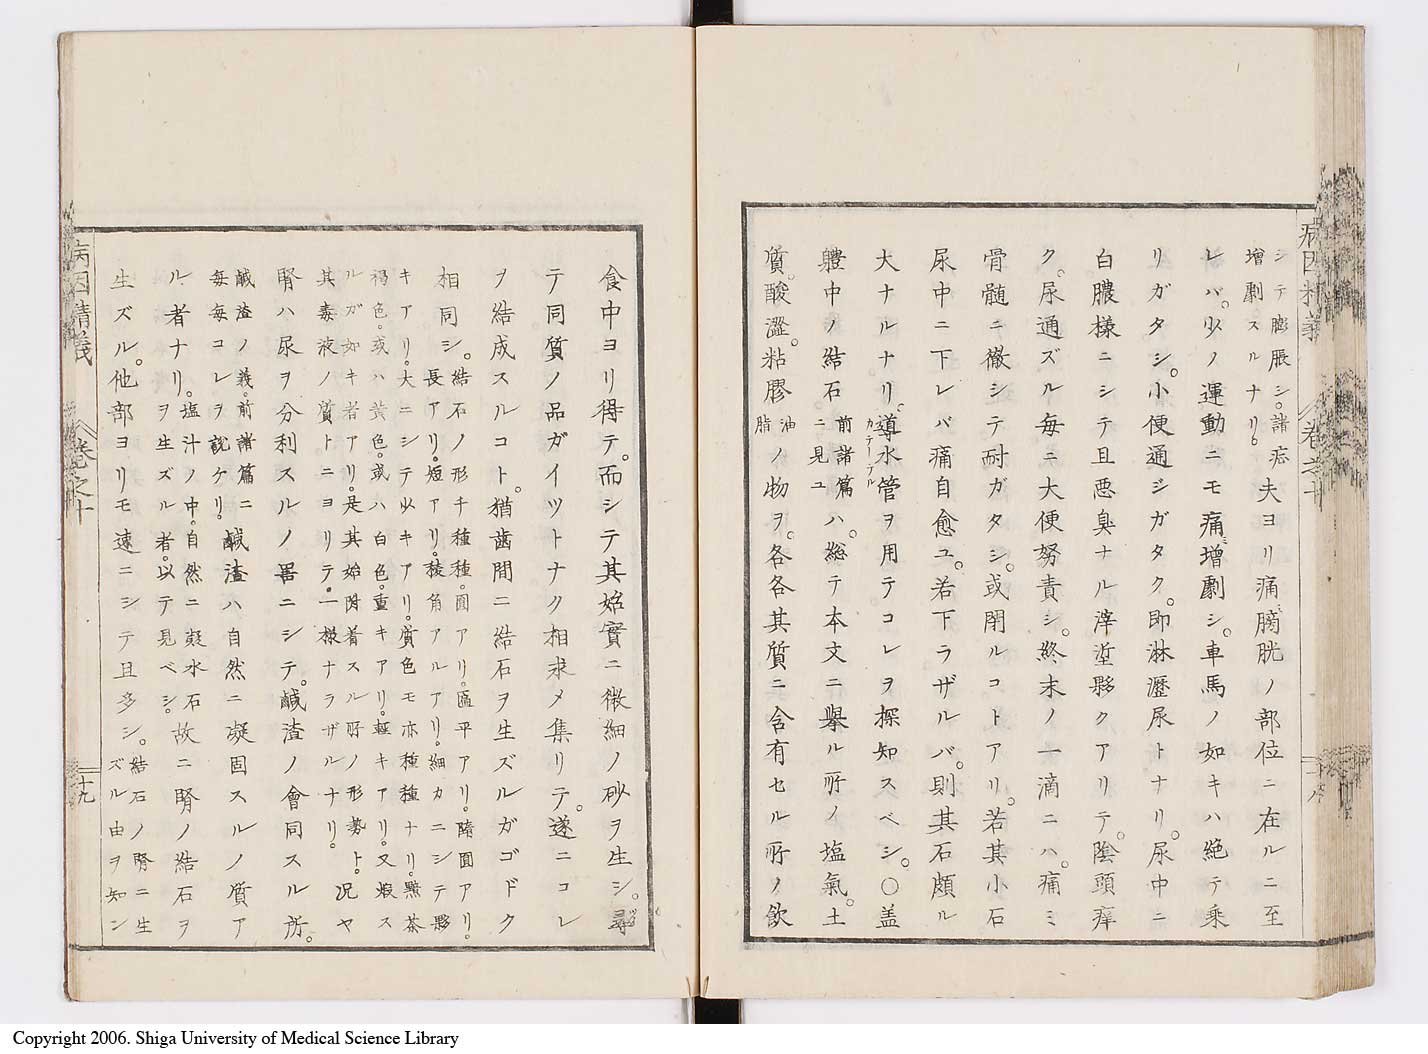 シテ膨脹シ。諸症
増劇スルナリ。
夫ヨリ痛膀胱ノ部位ニ在ルニ至
レバ。少ノ運動ニモ痛ミ増劇シ。車馬ノ如キハ絶テ乗
リガタシ。小便通ジガタク。即淋瀝尿トナリ。尿中ニ
白膿様ニシテ且悪臭ナル滓埿夥クアリテ。陰頭痒
ク。尿通ズル毎ニ大便努責シ。終末ノ一滴ニハ。痛ミ
骨髄ニ徹シテ耐ガタシ。或閉ルコトアリ。若其小石
尿中ニ下レバ痛自愈ユ。若下ラザルバ。則其石頗ル
大ナルナリ。導水管ヲ用テコレヲ探知スベシ。〇蓋
カテーテル
軆中ノ結石
前諸篇
ニ見ユ
ハ。総テ本文ニ擧ル所ノ塩氣。土
質。酸澀。粘膠
油
脂
ノ物ヲ。各各其質ニ含有セル所ノ飲
病因精義
巻之十
十八
食中ヨリ得テ。而シテ其始實ニ微細ノ砂ヲ生シ。尋
ツイ
テ同質ノ品ガイツトナク相求メ集リテ。遂ニコレ
ヲ結成スルコト。猶歯間ニ結石ヲ生ズルガゴドク
相同シ。
結石ノ形千種種。圓アリ。區平アリ。隋圓アリ。
長アリ。短アリ。稜角アルアリ。細カニシテ夥
キアリ。大ニシテ少キアリ。質色モ亦種種ナリ。黙茶
褐色。或ハ黄色。或ハ白色。重キアリ。軽キアリ。又蝦ス
ルガ如キ者アリ。是其始附着スル所ノ形勢ト。况ヤ
其毒液ノ質トニヨリテ。一様ナラザルナリ。
腎ハ尿ヲ分利スルノ噐ニシテ。鹹渣ノ會同スル所。
鹹渣ノ義。前諸篇ニ
毎毎コレヲ説ケリ。
鹹渣ハ自然ニ凝固スルノ質ア
ル者ナリ。
塩汁ノ中。自然ニ凝水石
ヲ生ズル者。以テ見ベシ。
故ニ腎ノ結石ヲ
生ズル。他部ヨリモ速ニシテ且多シ。
結石ノ腎ニ生
ズル由ヲ知ン
病因精義
巻之十
十九
Copyright 2006. Shiga University of Medical Science Library